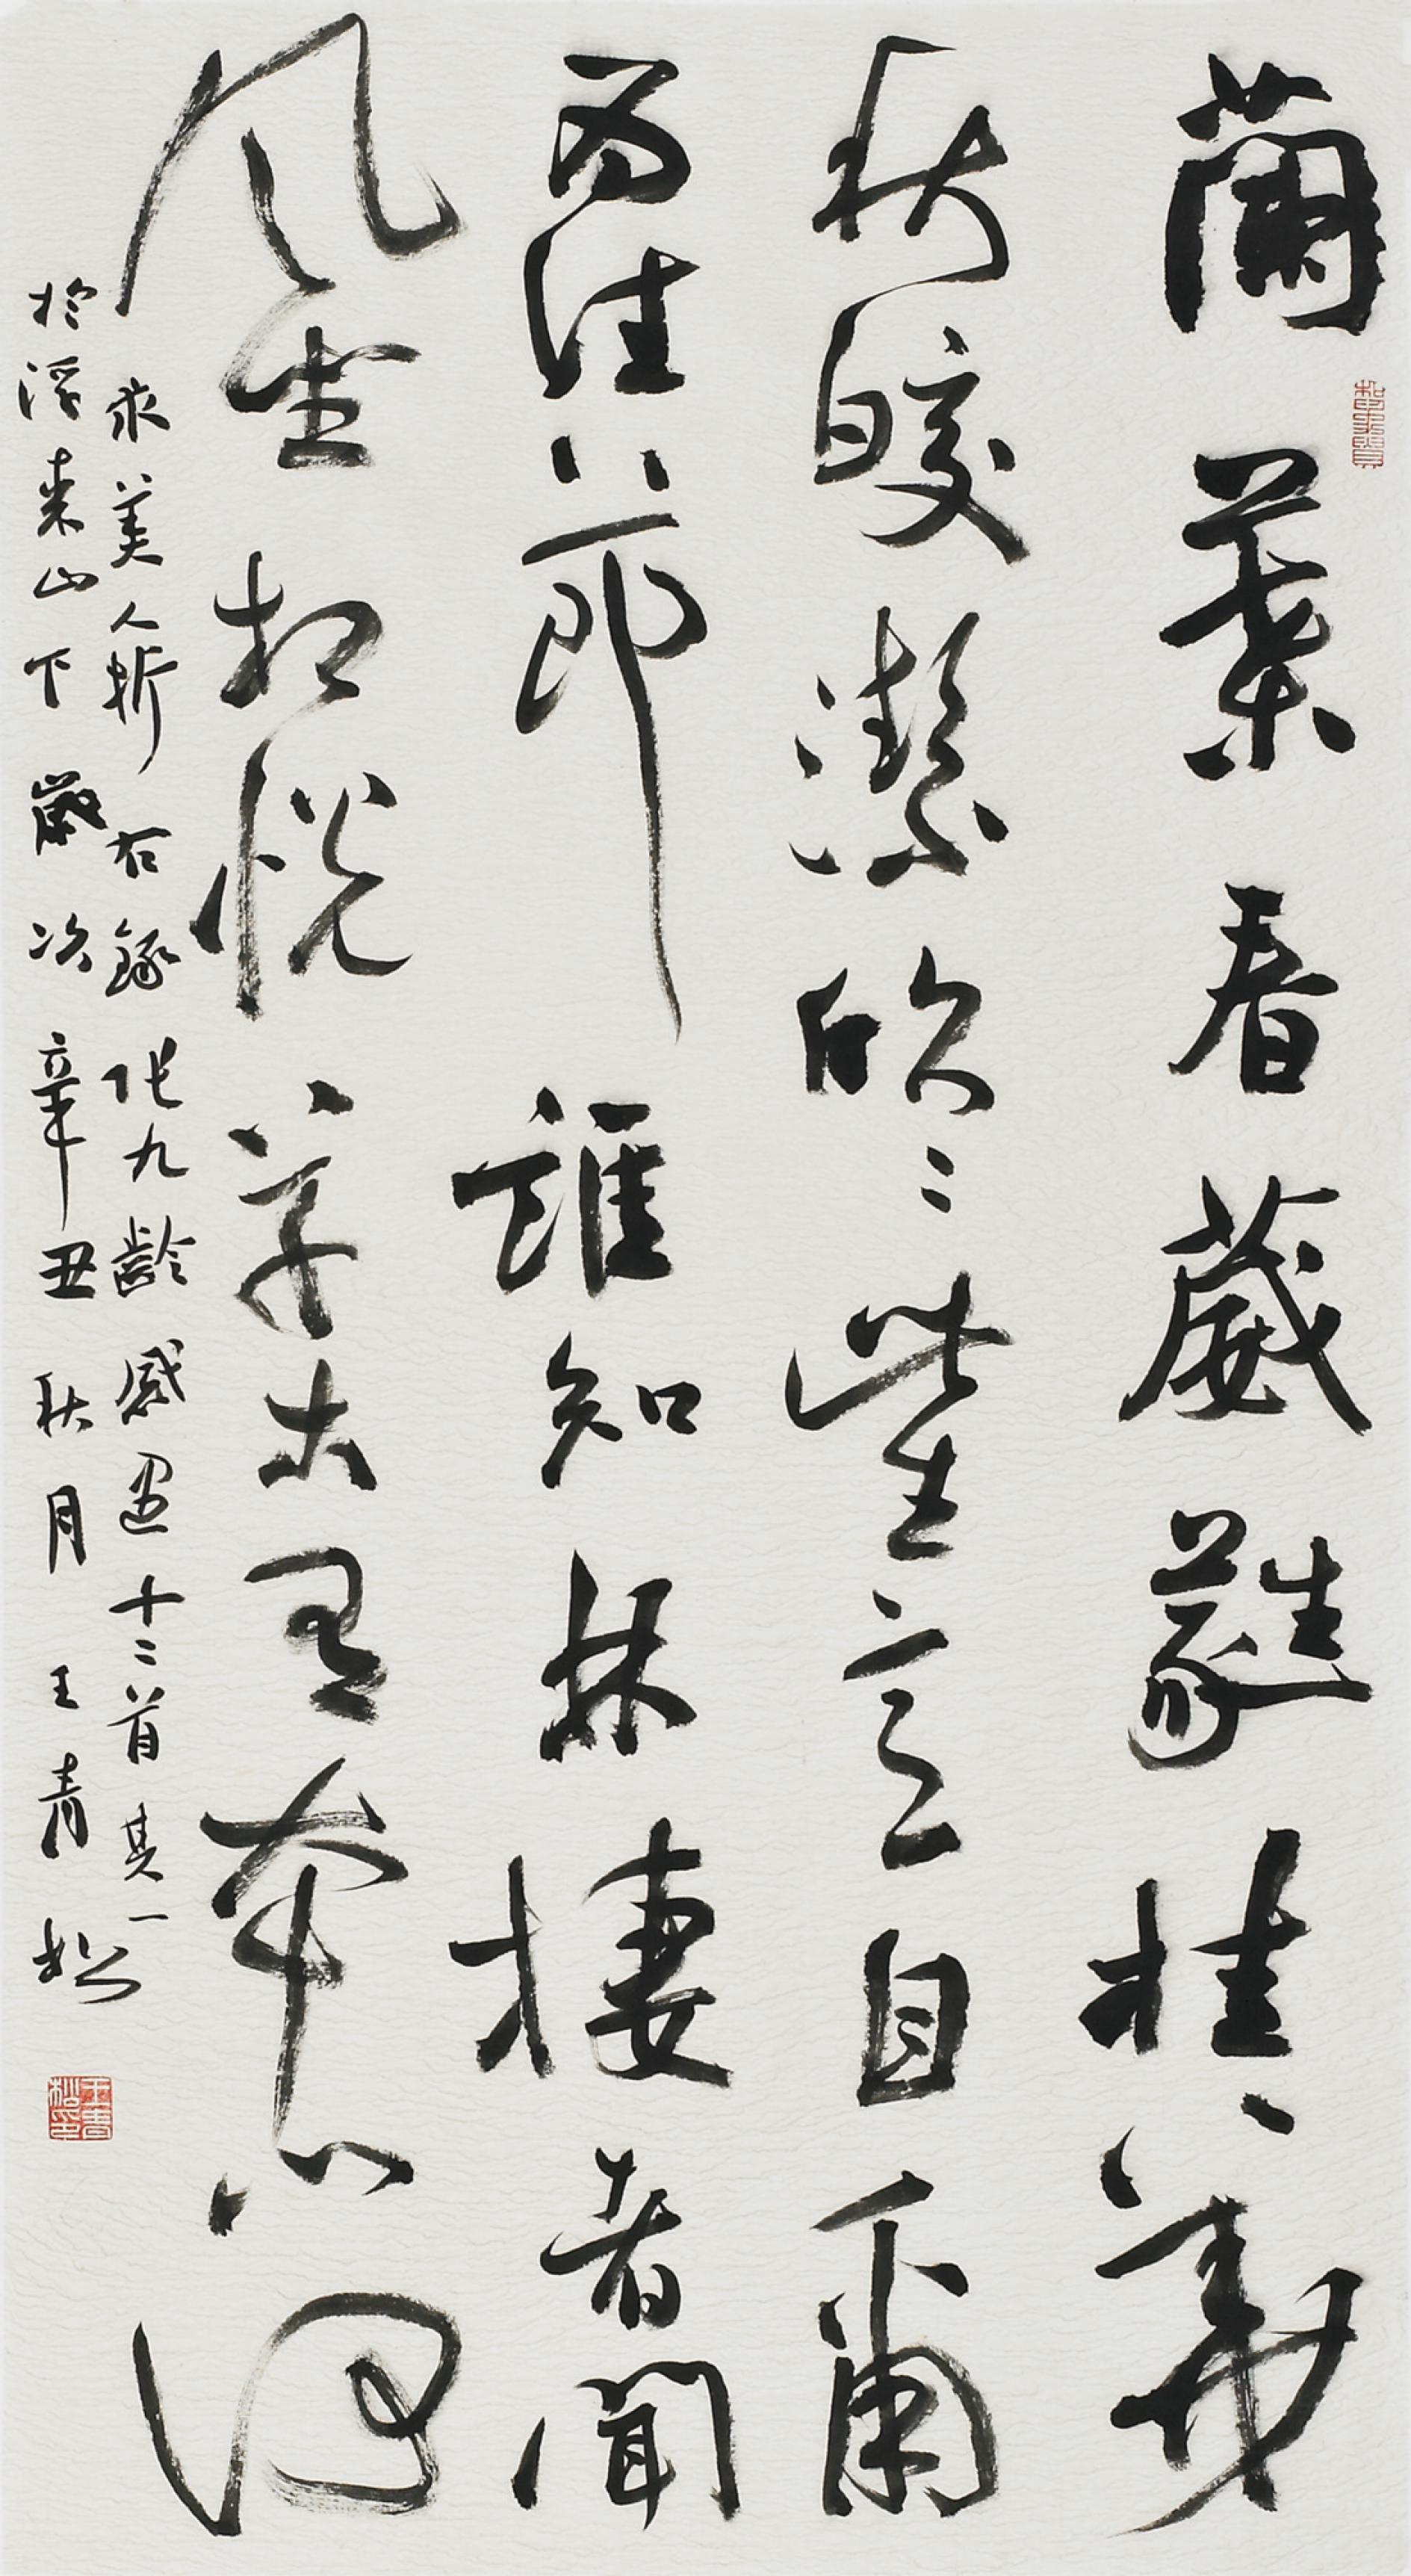 蘭葉春葳蕤桂華
秋皎潔欣〻此生意自尒爾
為佳節誰知林棲者聞
風坐相悅草木有本心何
求美人折右録張九齡感遇十二首其一
於浮来山下歲次辛丑秋月王青松
王青松印